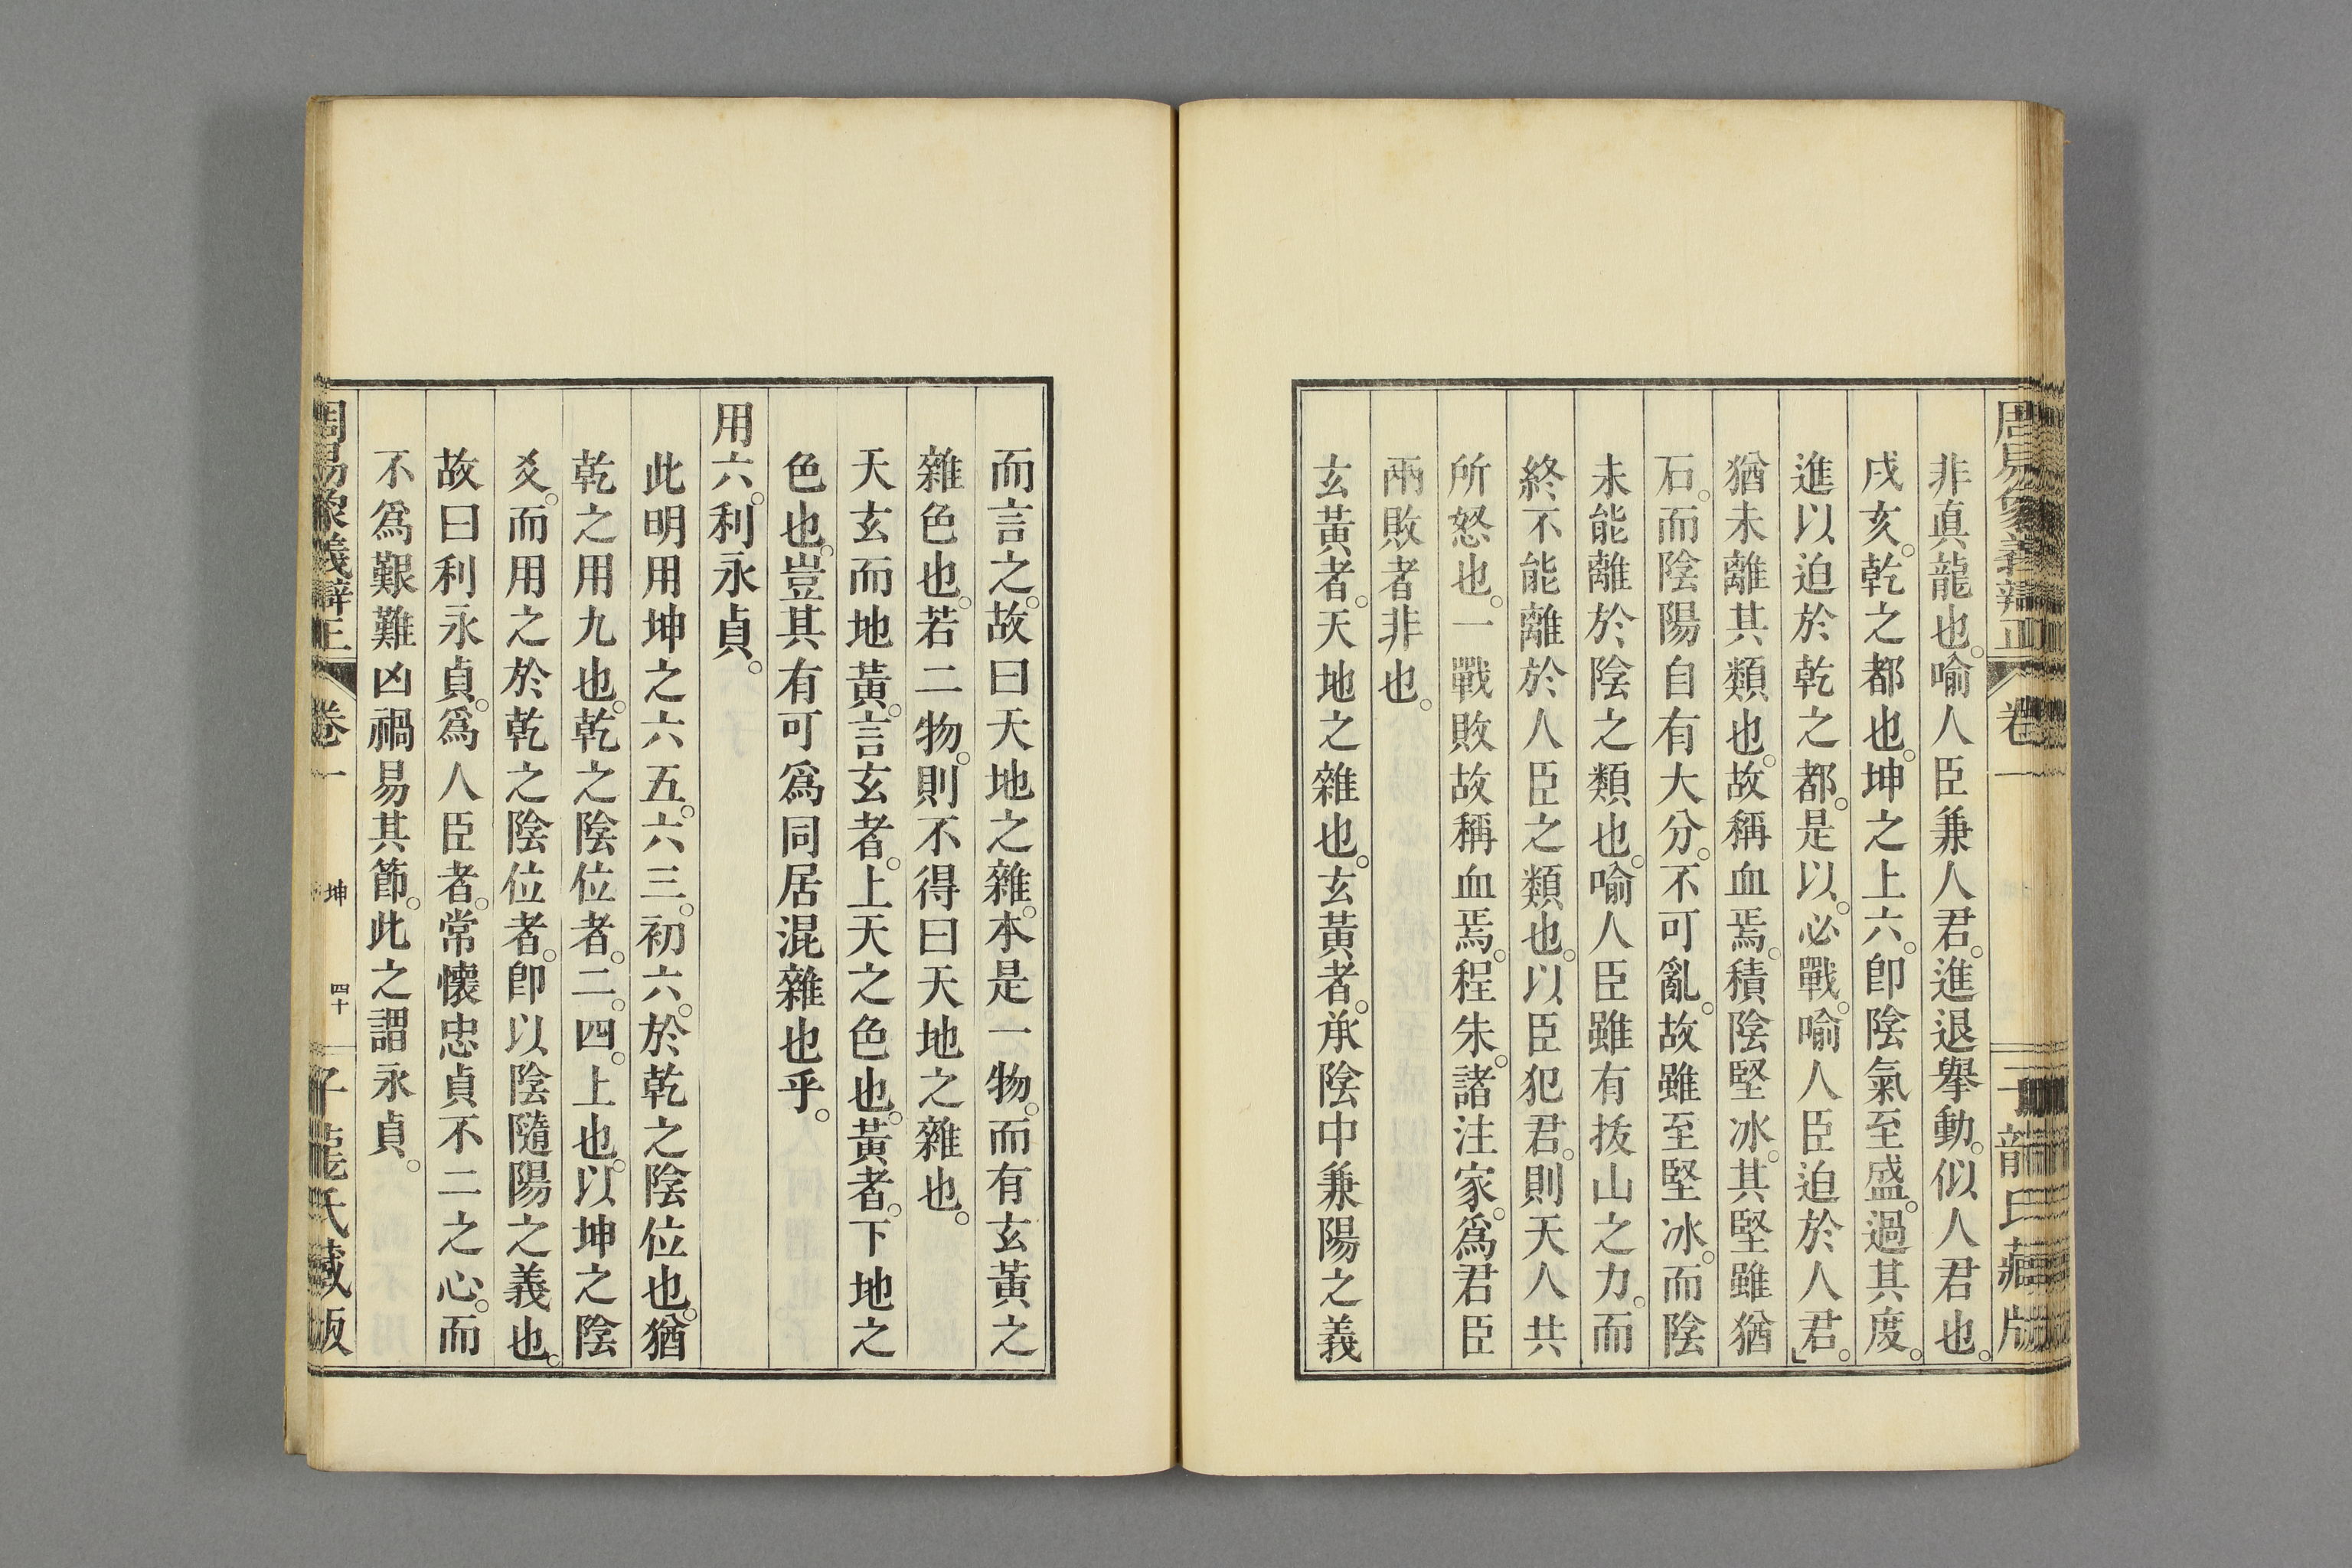 周易象義辯正　卷一　子龍氏藏版
非真龍也。喻人臣兼人君。進退擧動。似人君也。
戌亥。乾之都也。坤之上六。卽陰氣至盛。過其度。
進以迫於乾之都。是以。必戰。喻人臣迫於人君。」
猶未離其類也。故稱血焉。積陰堅冰。其堅雖猶
石。而陰陽自有大分。不可亂。故雖至堅冰。而陰
未能離於陰之類也。喻人臣雖有拔山之力。而
終不能離於人臣之類也。以臣犯君。則天人共
所怒也。一戰敗故稱血焉。程朱。諸注家。爲君臣
兩敗者非也。
玄黃者。天地之雜也。玄黃者。承陰中兼陽之義
而言之。故曰天地之雜。本是一物。而有玄黃之
雜色也。若二物。則不得曰天地之雜也。
天玄而地黃。言玄者。上天之色也。黃者。下地之
色也。豈其有可爲同居混雜也乎。
用六。利永貞。
此明用坤之六五。六三。初六。於乾之陰位也。猶
乾之用九也。乾之陰位者。二。四。上也。以坤之陰
爻。而用之於乾之陰位者。卽以陰隨陽之義也。
故曰利永貞。爲人臣者。常懷忠貞不二之心。而
不爲艱難凶禍易其節。此之謂永貞。
周易象義辯正　卷一　坤　四十　子龍氏藏版